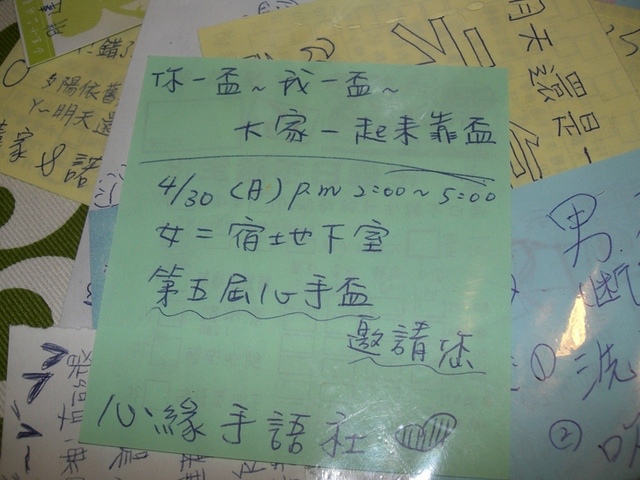 你一盃~我一盃~
大家一起來靠盃
4/30 (日) p.m 2:00~5:00
女二宿地下室
第五屆心手盃
邀請您
心緣手語社
錯了
夕陽依舊
明天還
家
語
天還是
男
斷
① 洗
②